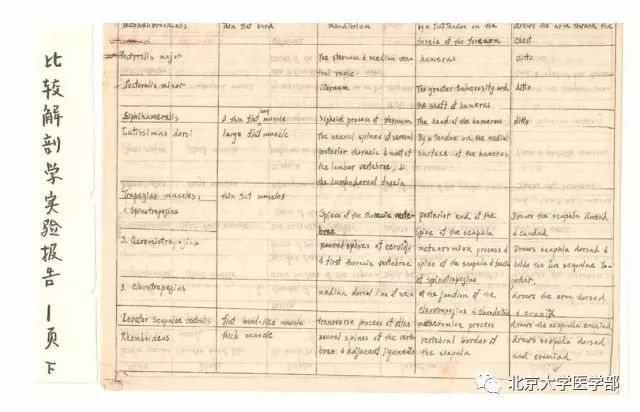 比较解剖学实验报告1页下
thin flat band mandibrium by a flat tendon on the draws the arm toward the
fascia of the forearm chest
Pectoralis major The sternum & median ven- humerus ditto
tral raphe
Pectoralis minor sternum The greater tuberosity and ditto
the shaft of humerus.
Xiphihumeralis A thin flat long muscle xiphoid process of sternum The head of the humerus ditto
Latissimus dorsi large flat muscle the neural spines of several By a tendon on the medial
posterior thoracic & most of surface of the humerus
the lumbar vertebrae,
the lumbodorsal fascia
Trapezius muscles: thin flat muscles
1. Spinotrapezius Spines of the thoracic verte- posterior end of the Draws the scapula dorsad
brae spine of the scapula & caudad
2. Acromiotrapezius neural spines of cervical metacromion process & Draws scapula dorsad &
& first thoracic vertebrae spine of the scapula & fascia holds the two scapulae to-
of spinotrapezius gether.
3. Clavotrapezius median dorsal line of neck at the junction of the draws the arm dorsad
clavotrapezius & & craniad
Levator scapulae ventralis flat band-like muscle transverse process of atlas metacromion process draws the scapula craniad
Rhomboideus thick muscle neural spines of the verte- vertebral border of draws scapula dorsad
brae & adjacent ligaments the scapula and craniad
北京大学医学部